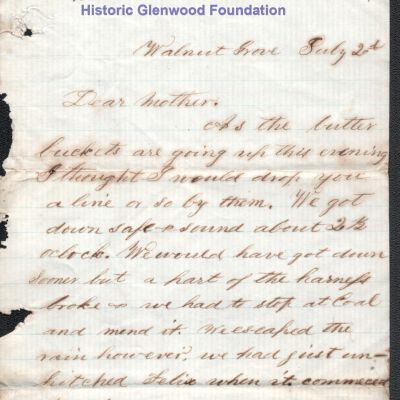 Historic Glenwood Foundation
Walnut Grove July 2d
Dear Mother.
As the butter
buckets are going up this evening
I thought I would drop you
a line or so by them. We got
down safe & sound about 2½
oclock. We would have got down
sooner but a part of the harness
broke & we had to stop at Coal
and mend it. We escaped the
rain however, we had just un-
hitched Felix when it commeced